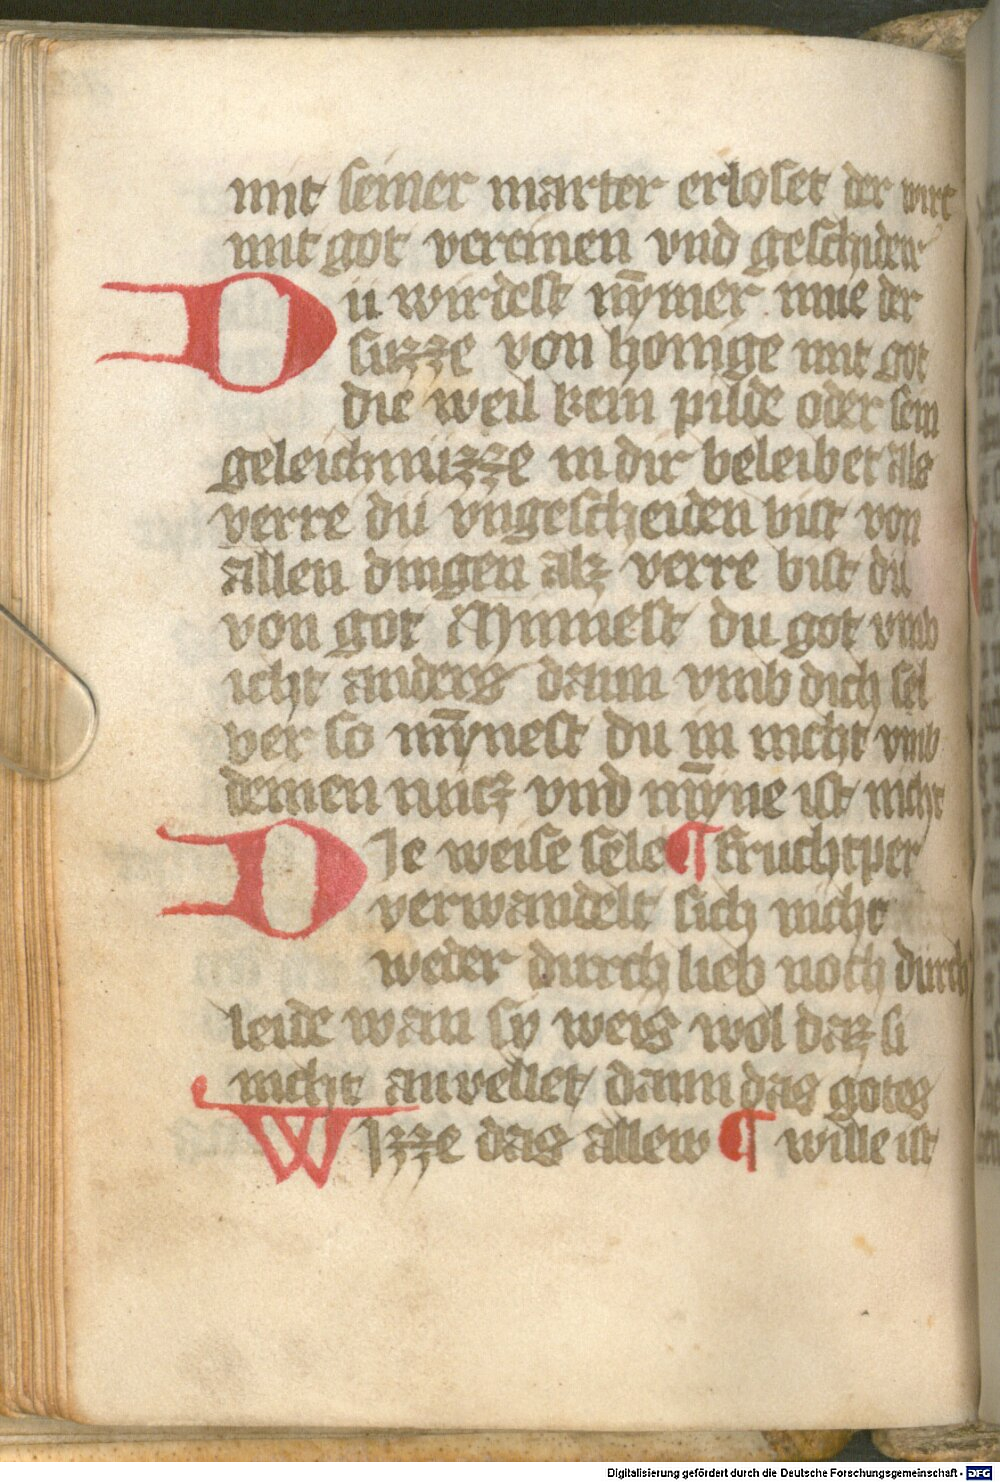 mit seiner marter erloset der wirt
mit got vereinen vnd geschiden
Du wirdest nȳmer inne der
suzze von honige mit got
die weil kein pilde oder sein
geleichnuzze in dir beleibet als
verre du vngescheiden bist von
allen dingen alz verre bist du
von got Mynnest du got vmb
icht anders dann vmb dich sel
ber so mȳnest du in nicht vmb
deinen nucz vnd mȳne ist nicht
DJe weise sele ¶ fruchtper
verwandelt sich nicht
weder durch lieb noch durch
leide wan sy weis wol daz si
nicht anvellet dann das gotes
WJzze das allew ¶ wille ist
Digitalisierung gefördert durch die Deutsche Forschungsgemeinschaft - DFG